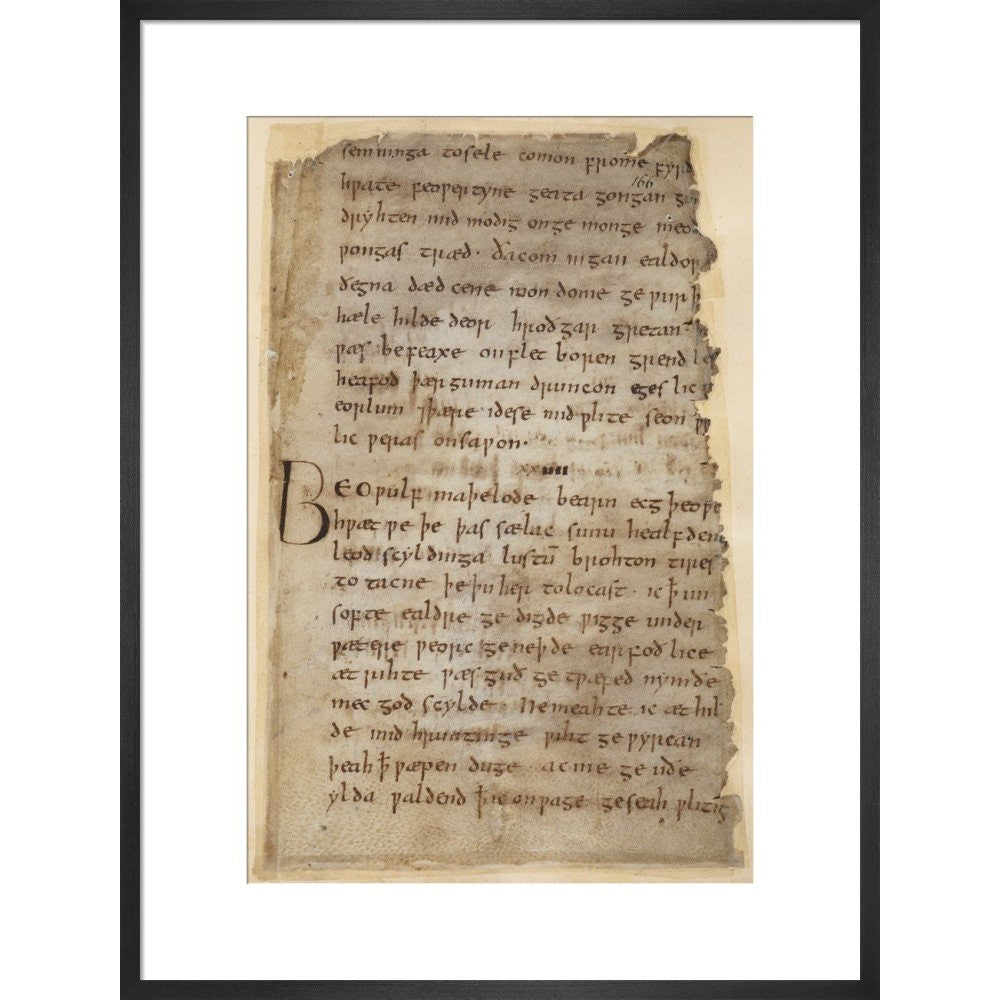 semninga tosele comon frome fyrd
166
hƿate feoƿertyne geata gongan gu
dryhten mid modig onge monge meod
ƿongas træd. ða com ingan ealdor
ðegna dæd cene mon dome ge ƿurþ
hæle hilde deor hroðgar gretan þ
ƿæs be feaxe onflet boren grendles
heafod þær guman druncon egeslic
eorlum ⁊þære idese mid ƿlite seon
lic ƿeras onsaƿon.
xxiiii
BEOƿulf maþelode bearn ecgþeoƿe
hƿæt ƿe þe þas sælac sunu healfden
leod scyldinga lustū brohton tires
to tacne þe þu her tolocast. ic ꝥ un
softe ealdre ge digde ƿigge under
ƿætere ƿeorc ge neþde earfoð lice
æt rihte ƿæs guð ge tƿæfed nymðe
mec god scylde. Ne meahte ic æt hil
de mid hruntinge ƿiht ge ƿyrcan
þeah ꝥ ƿæpen duge. ac me ge uðe
ylda ƿaldend ꝥ ic on ƿage geseah ƿlitig